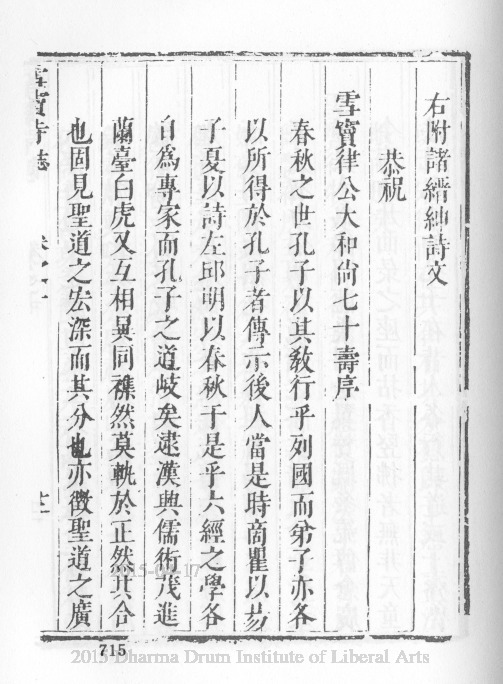 右附諸縉紳詩文
恭祝
雪竇律公大和尙七十壽序
春秋之世孔子以其敎行乎列國而弟子亦各
以所得於孔子者傳示後人當是時商瞿以易
子夏以詩左邱明以春秋于是乎六經之學各
自爲專家而孔子之道岐矣逮漢興儒術茂進
蘭臺白虎又互相異同襍然莫軌於正然其合
也固見聖道之宏深而其分也亦徵聖道之廣
雪竇寺誌
卷之十
715
2015 Dharma Drum Institute of Liberal Arts